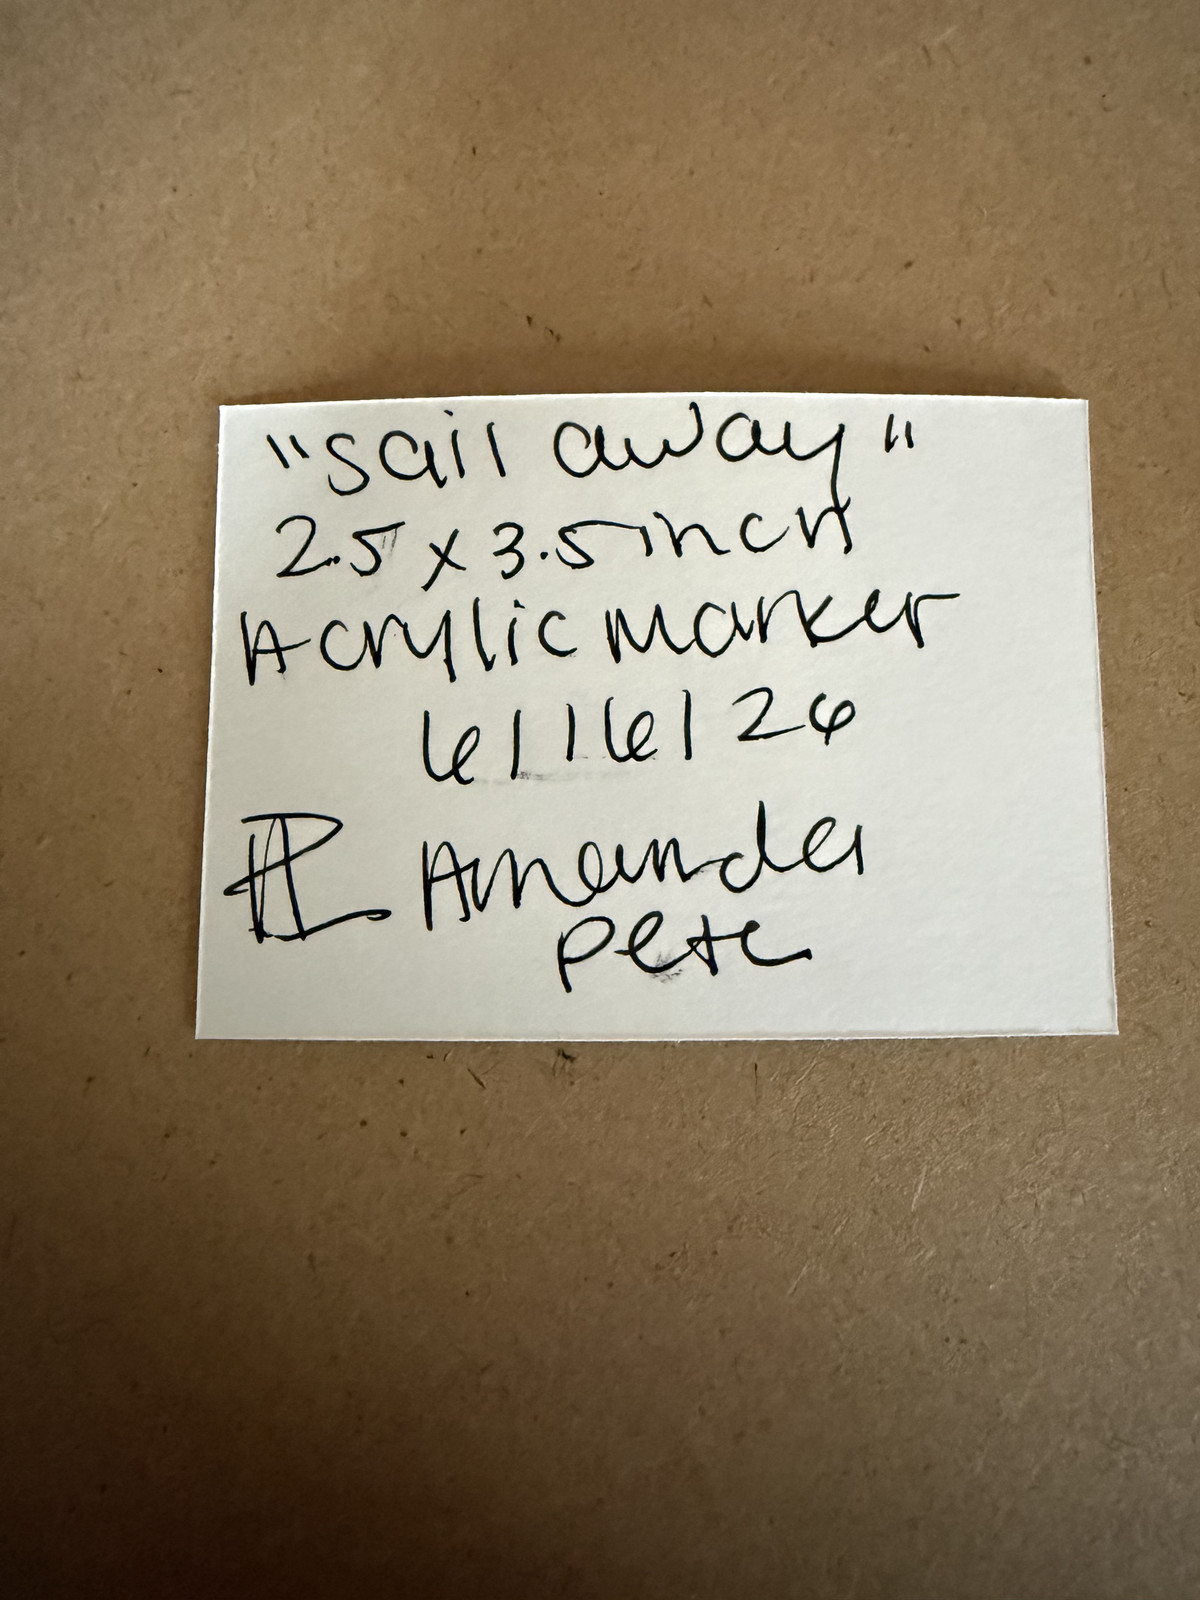 "sail away"
2.5 x 3.5 inch
Acrylic marker
6/16/26
Amanda
Pete